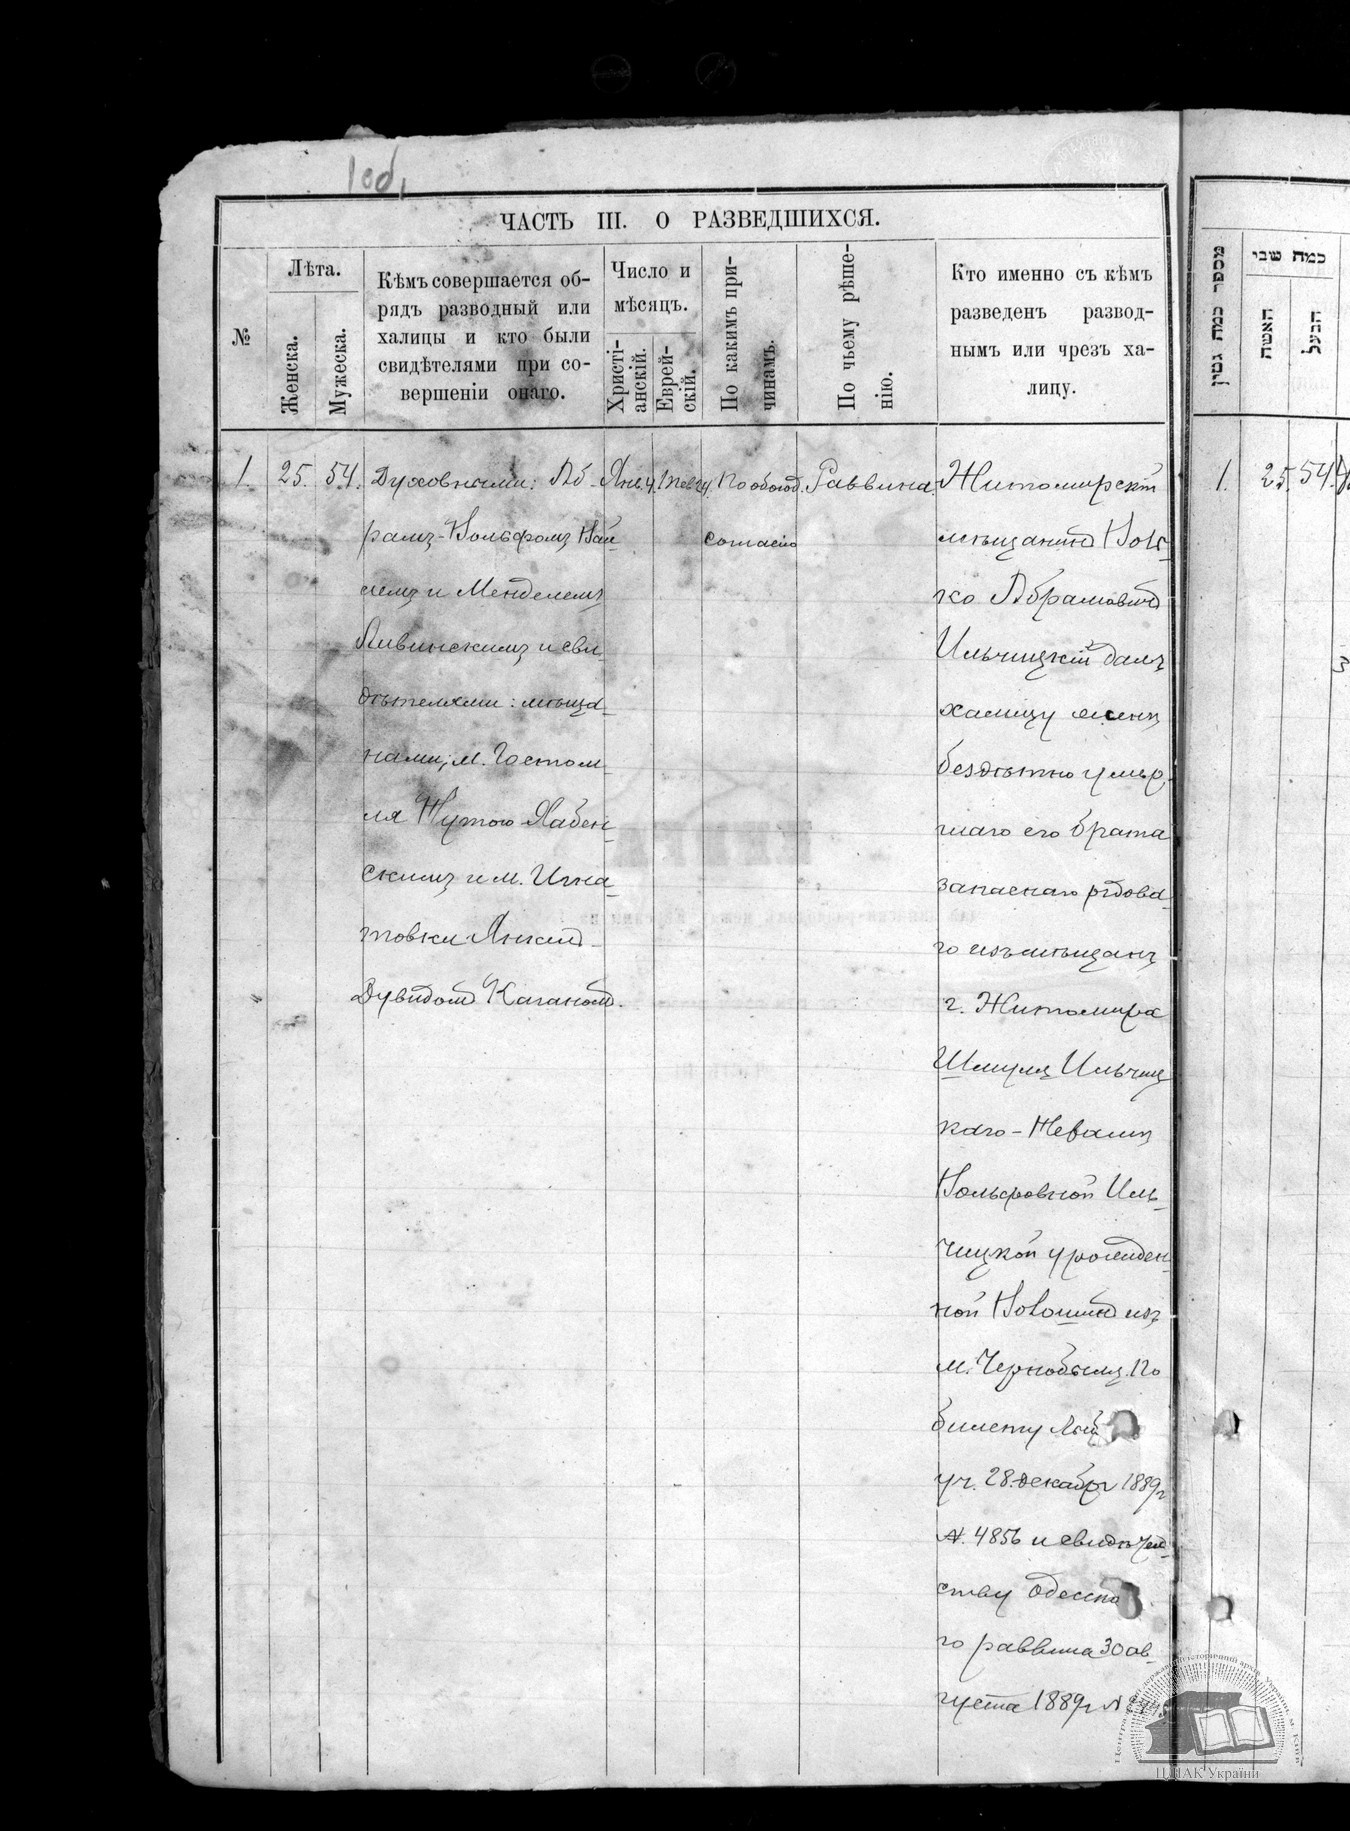 1об.
ЧАСТЬ III. О РАЗВЕДШИХСЯ.
№
Лѣта.
Женска.
Мужеска.
Кѣмъ совершается об-
рядъ разводный или
халицы и кто были
свидѣтелями при со-
вершеніи онаго.
Число и
мѣсяцъ.
Христі-
анскій.
Еврей-
скій.
По какимъ при-
чинамъ.
По чьему рѣше-
нію.
Кто именно съ кѣмъ
разведенъ развод-
нымъ или чрезъ ха-
лицу.
1.
25.
54.
Духовными: Аб-
рамъ-Вольфомъ
и Менделемъ
Ливинскимъ и сви-
дѣтелями: мѣща-
нами, м. Гостом-
ля Нутою Хабен-
скимъ и м. Игна-
товки Янкель-
Дувидомъ Каганомъ.
Янв. 4.
По обоюд.
согласію
Раввина.
Житомирскій
мѣщанинъ Воль-
ко Абрамовичъ
Ильчицкій далъ
халицу женѣ
бездѣтно умер-
шаго его брата
запаснаго рядова-
го изъ мѣщанъ
г. Житомира
Шмуля Ильчиц-
каго
Вольфовной Иль-
чицкой урожден-
ной изъ
м. Чернобыля. По
билету
уч. 28. декабря 1889 г.
№. 4856 и свидѣтель-
ству Одесска
го раввина 30 ав-
густа 1889 г. №
מספר כמה גטין
כמה שני
האשה
הבעל
1.
25.
54.
ЦДІАК України